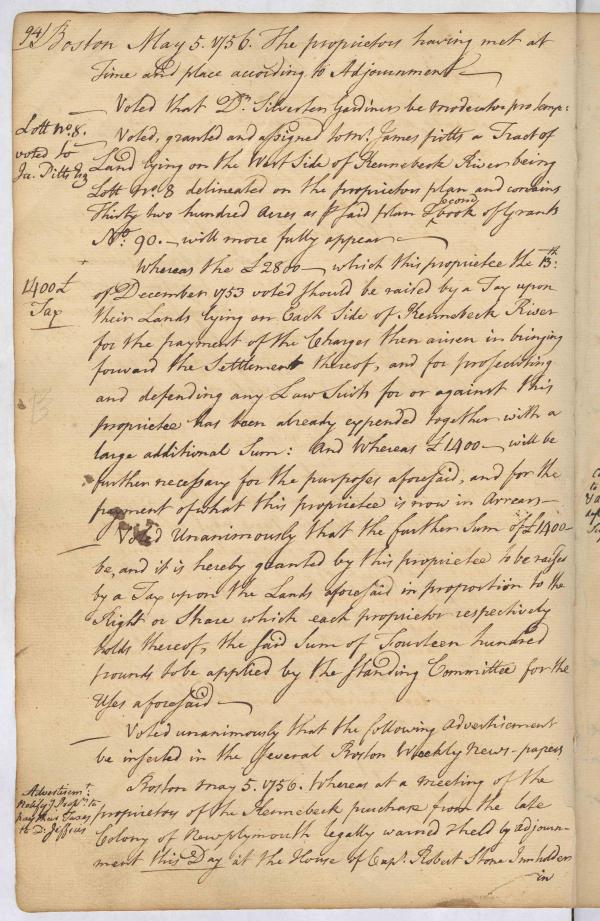 94)
Boston May 5. 1756. The proprietors having met at
Time and place according to Adjournment —
— Voted that Dr. Silvester Gardiner be moderator pro temp:
Lott No. 8.
voted to
Ja. Pitts Esq
— Voted, granted and assigned to Mr. James pitts a Tract of
Land lying on the West Side of Kennebeck River being
Lott No. 8 delineated on the proprietors plan and contains
Thirty two hundred Acres as pr. said plan & second book of Grants
No. 90. — will more fully appear —
1400£
Tax
Whereas the £2800 — which this proprietee the 13th:
of December 1753 voted should be raised by a Tax upon
their Lands lying on Each Side of Kennebeck River
for the payment of the Charges then arisen in bringing
forward the Settlement thereof, and for prosecuting
and defending any Law Suits for or against this
proprietee has been already expended together with a
large additional Sum: And Whereas £1400 — will be
further necessary for the purposes aforesaid, and for the
payment of what this proprietee is now in Arrears —
— Voted Unanimously that the further Sum of £1400 —
be, and it is hereby granted by this proprietee to be raised
by a Tax upon the Lands aforesaid in proportion to the
Right or Share which each proprietor respectively
holds thereof, the said Sum of Fourteen hundred
pounds to be applied by the Standing Committee for the
Uses aforesaid —
— Voted unanimously that the following Advertisement
be inserted in the several Boston Weekly News-papers
Advertisemt.
Notify ye Proprs. to
pay their Taxes
to Dr. Jeffries
Boston may 5. 1756. Whereas at a meeting of the
proprietors of the Kennebeck purchase from the late
Colony of Newplymouth legally warned & held by Adjourn-
ment this Day at the House of Capt. Robert Stone Innholder
in